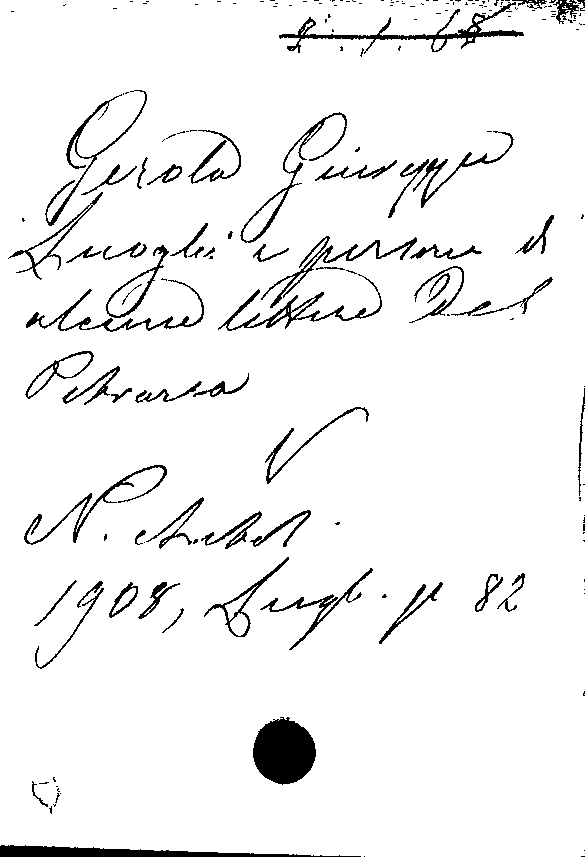 2. 1. 68
Gerola Giuseppe
Luoghi e persone di
alcune lettere Del
Petrarca
V
N. Archiv.
1908, Lugl. p 82